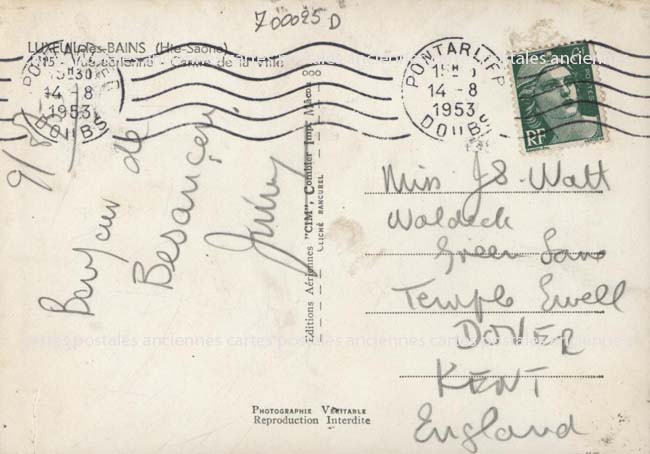 700025 D
LUXEUIL-les-BAINS (Hte-Saône)
Vue aérienne - Centre de la Ville
PONTARLIER
15H30
14-8
1953
DOUBS
PONTARLIER
15H30
14-8
1953
DOUBS
RF
9/8/53
Bonjour de
Besançon.
Editions Aériennes "CIM", Combier Imp. Mâcon
CLICHÉ RANCUREL
Miss J S. Watt
Waldeck
Green Lane
Temple Ewell
DOVER
KENT
England
cartes postales anciennes cartes postales anciennes cartes postales anciennes
PHOTOGRAPHIE VÉRITABLE
Reproduction Interdite